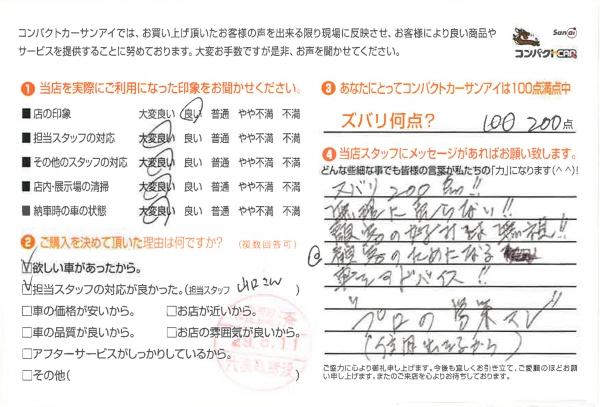 コンパクトカーサンアイでは、お買い上げ頂いたお客様の声を出来る限り現場に反映させ、お客様により良い商品や
サービスを提供することに努めております。大変お手数ですが是非、お声を聞かせてください。
Sanai
コンパクトCAR
1 当店を実際にご利用になった印象をお聞かせください。
■ 店の印象 大変良い 良い 普通 やや不満 不満
■ 担当スタッフの対応 大変良い 良い 普通 やや不満 不満
■ その他のスタッフの対応 大変良い 良い 普通 やや不満 不満
■ 店内・展示場の清掃 大変良い 良い 普通 やや不満 不満
■ 納車時の車の状態 大変良い 良い 普通 やや不満 不満
2 ご購入を決めて頂いた理由は何ですか? (複数回答可)
□欲しい車があったから。
□担当スタッフの対応が良かった。(担当スタッフ )
□車の価格が安いから。 □お店が近いから。
□車の品質が良いから。 □お店の雰囲気が良いから。
□アフターサービスがしっかりしているから。
□その他(
29.6.11
3 あなたにとってコンパクトカーサンアイは100点満点中
ズバリ何点? 100 200点
4 当店スタッフにメッセージがあればお願い致します。
どんな些細な事でも皆様の言葉が私たちの「力」になります(^^)!
ズバリ200点!!
顧客の
顧客のためになる
アドバイス!!
"プロの営業マン"
(信用出来るから)
ご協力に心より御礼申し上げます。今後も宜しくお引き立て、ご愛顧のほどお願
い申し上げます。またのご来店を心よりお待ちしております。